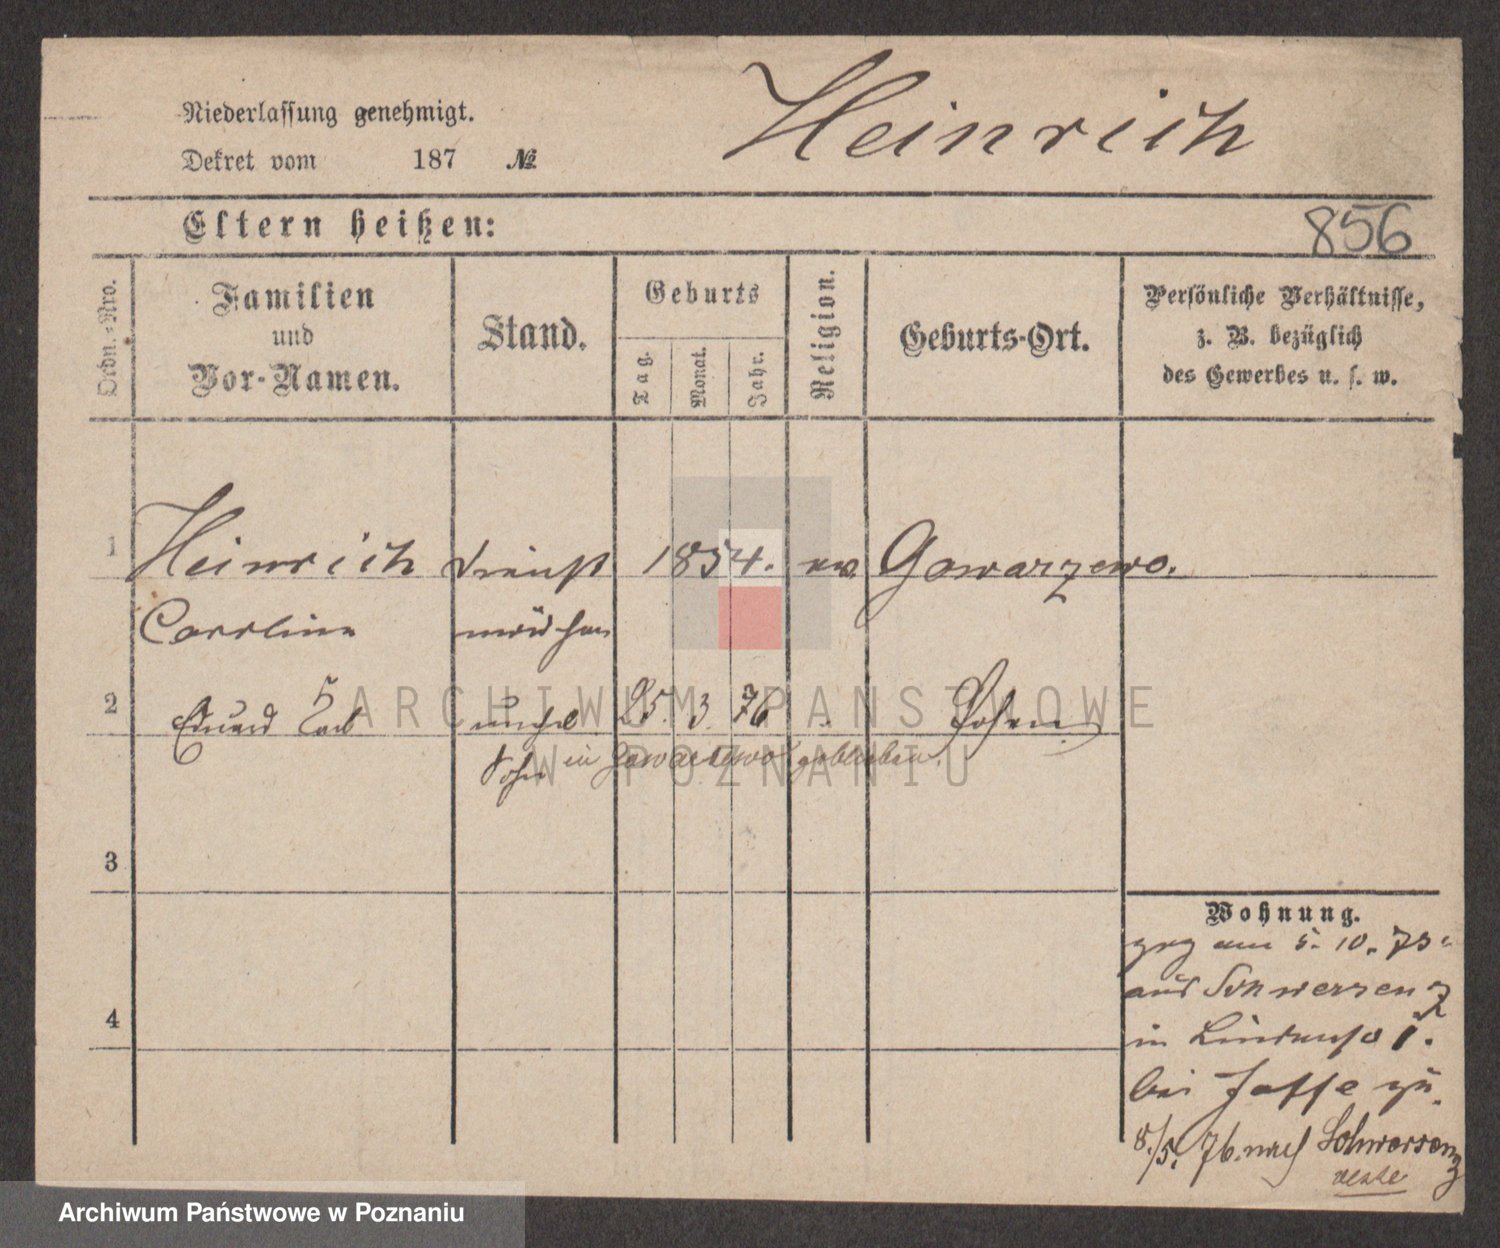 Niederlassung genehmigt.
Heinrich
Dekret vom 187 №
Eltern heißen:
856
Ordn.-Nro.
Familien
und
Vor-Namen.
Stand.
Geburts
Tag.
Monat.
Jahr.
Religion.
Geburts-Ort.
Persönliche Verhältnisse,
z. B. bezüglich
des Gewerbes u. s. w.
1 Heinrich Dienst 1854. ev. Gowarzewo.
Caroline mädchen
2 Eduard 25. 3. 76 Posen
Sohn in Gowarzewo geblieben.
3
4
Wohnung.
zog am 5. 10. 75.
aus Schwersenz
in Lindenstr
bei Jaffe zu.
8./5. 76. nach Schwersenz
ARCHIWUM PAŃSTWOWE
W POZNANIU
Archiwum Państwowe w Poznaniu